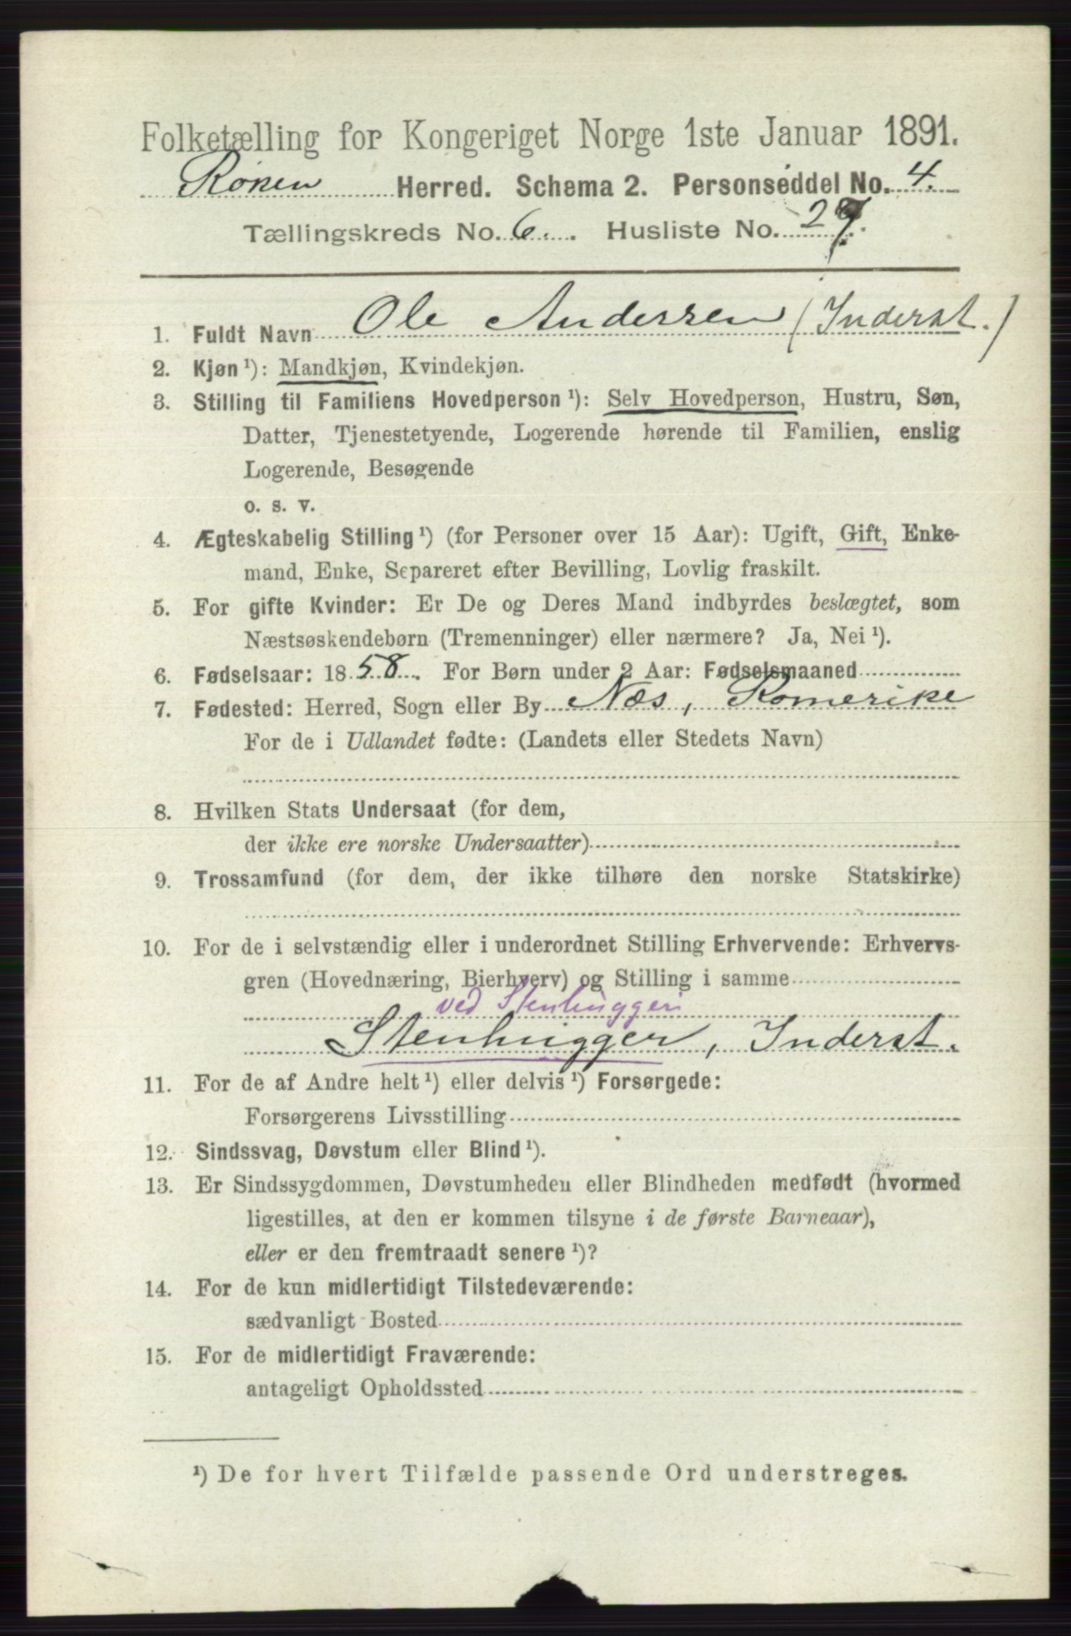 Folketælling for Kongeriget Norge 1ste Januar 1891.
Røken Herred. Schema 2. Personseddel No. 4.
Tællingskreds No. 6. Husliste No. 27.
1. Fuldt Navn Ole Andersen (Inderst.)
2. Kjøn ¹): Mandkjøn, Kvindekjøn.
3. Stilling til Familiens Hovedperson ¹): Selv Hovedperson, Hustru, Søn,
Datter, Tjenestetyende, Logerende hørende til Familien, enslig
Logerende, Besøgende
o. s. v.
4. Ægteskabelig Stilling ¹) (for Personer over 15 Aar): Ugift, Gift, Enke-
mand, Enke, Separeret efter Bevilling, Lovlig fraskilt.
5. For gifte Kvinder: Er De og Deres Mand indbyrdes beslægtet, som
Næstsøskendebørn (Tremenninger) eller nærmere? Ja, Nei ¹).
6. Fødselsaar: 1858. For Børn under 2 Aar: Fødselsmaaned
7. Fødested: Herred, Sogn eller By Næs, Romerike
For de i Udlandet fødte: (Landets eller Stedets Navn)
8. Hvilken Stats Undersaat (for dem,
der ikke ere norske Undersaatter)
9. Trossamfund (for dem, der ikke tilhøre den norske Statskirke)
10. For de i selvstændig eller i underordnet Stilling Erhvervende: Erhvervs-
gren (Hovednæring, Bierhverv) og Stilling i samme
ved Stenhuggeri
Stenhugger, Inderst.
11. For de af Andre helt ¹) eller delvis ¹) Forsørgede:
Forsørgerens Livsstilling
12. Sindssvag, Døvstum eller Blind ¹).
13. Er Sindssygdommen, Døvstumheden eller Blindheden medfødt (hvormed
ligestilles, at den er kommen tilsyne i de første Barneaar),
eller er den fremtraadt senere ¹)?
14. For de kun midlertidigt Tilstedeværende:
sædvanligt Bosted
15. For de midlertidigt Fraværende:
antageligt Opholdssted
¹) De for hvert Tilfælde passende Ord understreges.